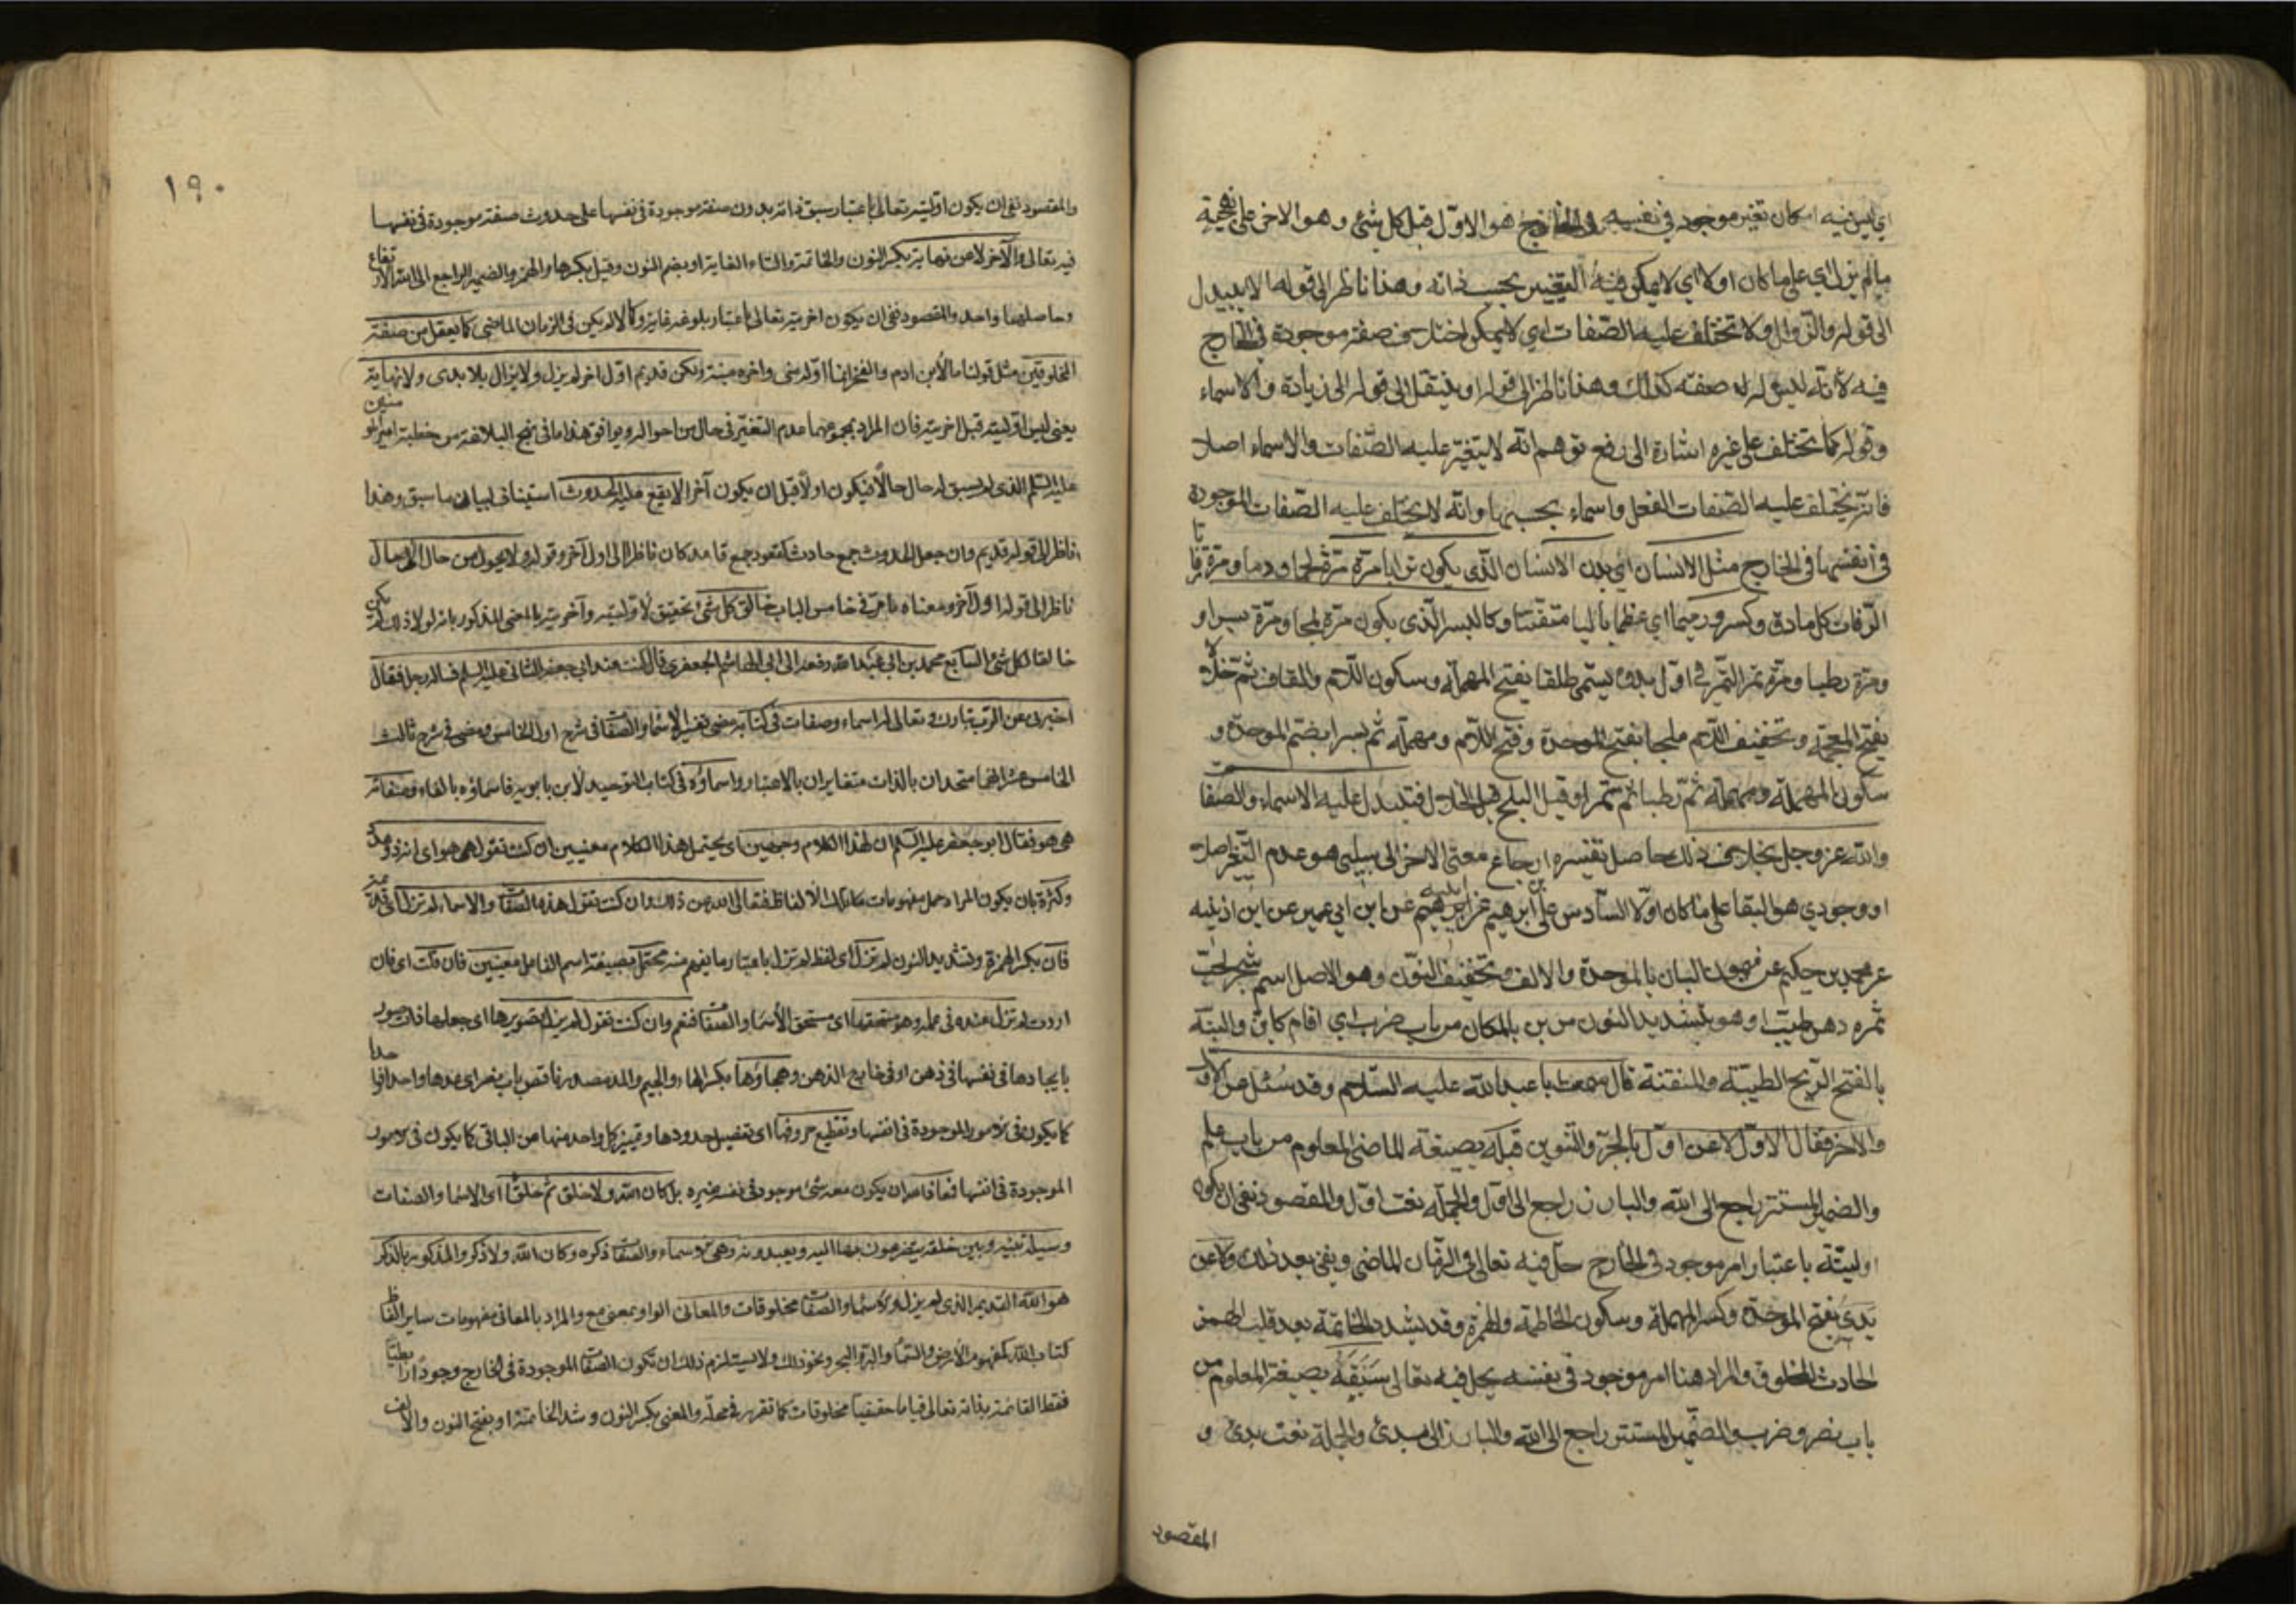 اي ليس فيه امكان تغير موجود في نفسه في الخارج هو الاول قبل كل شئ وهو الاخر على
ما لم يزل اي على ما كان اولا اي لا يمكن فيه التغيير بحسب ذاته وهذا ناظر الى قوله لا يبيد
الى قوله والزوال ولا تختلف عليه الصفات اي لا يمكن صفة موجودة في الخارج
فيه لانه ليس له صفة كذلك وهذا ناظر الى قوله او ينتقل الى قوله الى زيادة والاسماء
وقوله كما تختلف على غيره اشارة الى دفع توهم انه لا يتغير عليه الصفات والاسماء اصلا
فانه يختلف عليه الصفات الفعل واسماء بحسبها وانه لا يختلف عليه الصفات الموجودة
في انفسها في الخارج مثل الانسان اي بدن الانسان الذي يكون ترابا مرة ومرة لحما ودما ومرة رفاتا
الرفات كل ما دق وكسر ورميما اي عظما باليا متفتتا وكالبسر الذي يكون مرة بلحا ومرة بسرا و
ومرة رطبا ومرة تمرا التمر في اول بدوه يسمى طلعا بفتح المهملة وسكون اللام ثم خلالا
بفتح المعجمة وتخفيف اللام ثم بلحا بفتح الموحدة وفتح اللام ومهملة ثم بسرا بضم الموحدة و
سكون المهملة ومهملة ثم رطبا ثم تمرا وقيل البلح قبل الخلال فتتبدل عليه الاسماء والصفات
والله عز وجل بخلاف ذلك حاصل تفسيره ارجاع معنى الاخر الى سلبي هو عدم التغير اصلا
او وجودي هو البقا على ما كان اولا السادس علي بن ابرهيم عن ابيه عن ابن ابي عمير عن ابن اذينه
عن محمد بن حكيم عن ميمون البان بالموحدة والالف وتخفيف النون وهو الاصل اسم شجر لحب
ثمره دهن طيب او هو بتشديد النون من بن بالمكان من باب ضرب اي اقام كابن والبنة
بالفتح الريح الطيبة والمنتنة قال سمعت ابا عبد الله عليه السلام وقد سئل عن الاول
والاخر فقال الاول لا عن اول بالجر والتنوين قبله بصيغة الماضي المعلوم من باب علم
والضمير المستتر راجع الى الله والبارز راجع الى اول والجملة نعت اول والمقصود نفي ان يكون
اوليته باعتبار امر موجود في الخارج حل فيه تعالى في الزمان الماضي ويفنى بعد ذلك ولا عن
بدئ بفتح الموحدة وكسر المهملة وسكون الخاطمة والهمزة وقد يشدد الخاتمة بعد قلب الهمز
الحادث المخلوق والمراد هنا امر موجود في نفسه يحل فيه تعالى سبقه بصيغة المعلوم من
باب نصر وضرب والضمير المستتر راجع الى الله والبارز الى بدئ والجملة نعت بدئ و
المقصود
١٩٠
والمقصود نفي ان يكون اوليته تعالى باعتبار سبق ذاته بدون صفة موجودة في نفسها على حدوث صفة موجودة في نفسها
فيه تعالى والآخر لا عن نهاية بكسر النون والخاتمة والتاء الغاية او بضم النون وقيل بكسرها والهمز والضمير الراجع الى الله
وحاصلهما واحد والمقصود نفي ان يكون اخريته تعالى باعتبار بلوغه غاية وكمالا لم يكن في الزمان الماضي كما يعقل من صفة
المخلوقين مثل قولنا ما لابن ادم والفخر انما اوله مني واخره ميتة ولكن قديم اول اخر لم يزل ولا يزال بلا بدئ ولا نهاية
يعني ليس اوليته قبل اخريته فان المراد بمجموعهما عدم التغير في حال من احواله ويوافق هذا ما في نهج البلاغة من خطبة امير المؤمنين
عليه السلم الذي لم يسبق له حال حالا فيكون اولا قبل ان يكون آخرا لا يقع عليه الحدوث استيناف لبيان ما سبق وهذا
ناظر الى قوله قديم وان جعل الحدوث جمع حادث كقعود جمع قاعد كان ناظرا الى اول آخر وقوله ولا يحول من حال الى حال
ناظر الى قوله اول آخر ومعناه ما مر في خامس الباب خالق كل شئ تحقيق لاوليته وآخريته بالمعنى المذكور بانه لولا ذلك لم يكن
خالقا لكل شئ السابع محمد بن ابي عبد الله رفعه الى ابي هاشم الجعفري قال كنت عند ابي جعفر الثاني عليه السلم فساله رجل فقال
اخبرني عن الرب تبارك وتعالى له اسماء وصفات في كتابه مضى تفسير الاسماء والصفات في شرح اول الخامس ومضى في شرح ثالث
الخامس عشر انهما متحدان بالذات متغايران بالاعتبار واسماؤه في كتاب التوحيد لابن بابويه فاسماؤه بالفاء وصفاته
هي هو فقال ابو جعفر عليه السلم ان لهذا الكلام وجهين اي يحتمل هذا الكلام معنيين ان كنت تقول هي هو اي انه ذو عدد
وكثرة بان يكون المراد حمل مفهومات تلك الالفاظ فتعالى الله عن ذلك وان كنت تقول هذه الصفات والاسماء لم تزل اي قديمة
فان بكسر الهمزة وتشديد النون لم تزل اي لفظ لم تزل باعتبار ما يفهم منه محتمل بصيغة اسم الفاعل معنيين فان قلت اي فان
اردت لم تزل عنده في علمه وهو مستحقها اي مستحق الاسماء والصفات فنعم وان كنت تقول لم يزل تصويرها اي جعلها ذات صور
بايجادها في نفسها في ذهن او في خارج الذهن وهجاؤها بكسر الهاء والجيم والمد مصدر ناقص باب نصر اي عدها واحدا واحدا
كما يكون في الامور الموجودة في انفسها وتقطيع حروفها اي تفصيل حدودها وتمييز كل واحد منها من الباقي كما يكون في الامور
الموجودة في انفسها فمعاذ الله ان يكون معه شئ موجود في نفسه غيره بل كان الله ولا خلق ثم خلقها اي الاسماء والصفات
وسيلة بينه وبين خلقه يتضرعون بها اليه ويعبدونه وهي الاسماء والصفات ذكره وكان الله ولا ذكر والمذكور بالذكر
هو الله القديم الذي لم يزل والاسماء والصفات مخلوقات والمعاني الواو بمعنى مع والمراد بالمعاني مفهومات ساير الفاظ
كتاب الله كمفهوم الارض والسماء والبر والبحر ونحو ذلك ولا يستلزم ذلك ان تكون الصفات الموجودة في الخارج وجودا رابطيا
فقط القائمة بذاته تعالى قياما حقيقيا مخلوقات كما تقرر في محله والمعنى بكسر النون وشد الخاتمة او بفتح النون والالف